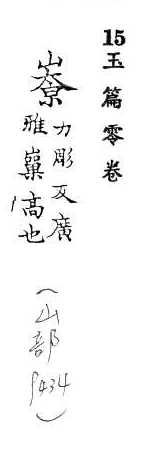 15玉篇零卷
嶚
力彫反廣
雅高也
(山部P434)